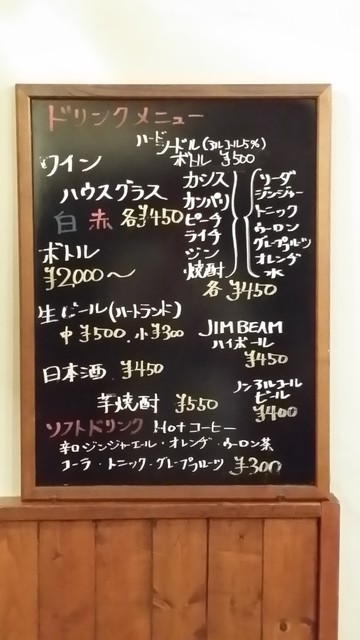 ドリンクメニュー
ハードシードル(アルコール5%)
ボトル ¥500
ワイン
ハウスグラス
白 赤 各¥450
ボトル
¥2,000～
カシス
カンパリ
ピーチ
ライチ
ジン
焼酎
ソーダ
ジンジャー
トニック
ウーロン
グレープフルーツ
オレンヂ
水
各 ¥450
生ビール(ハートランド)
中 ¥500. 小 ¥300
JIM BEAM
ハイボール
¥450
日本酒 ¥450
ノンアルコール
ビール
¥400
芋焼酎 ¥550
ソフトドリンク Hot コーヒー
辛口ジンジャーエール・オレンヂ・ウーロン茶
コーラ・トニック・グレープフルーツ ¥300